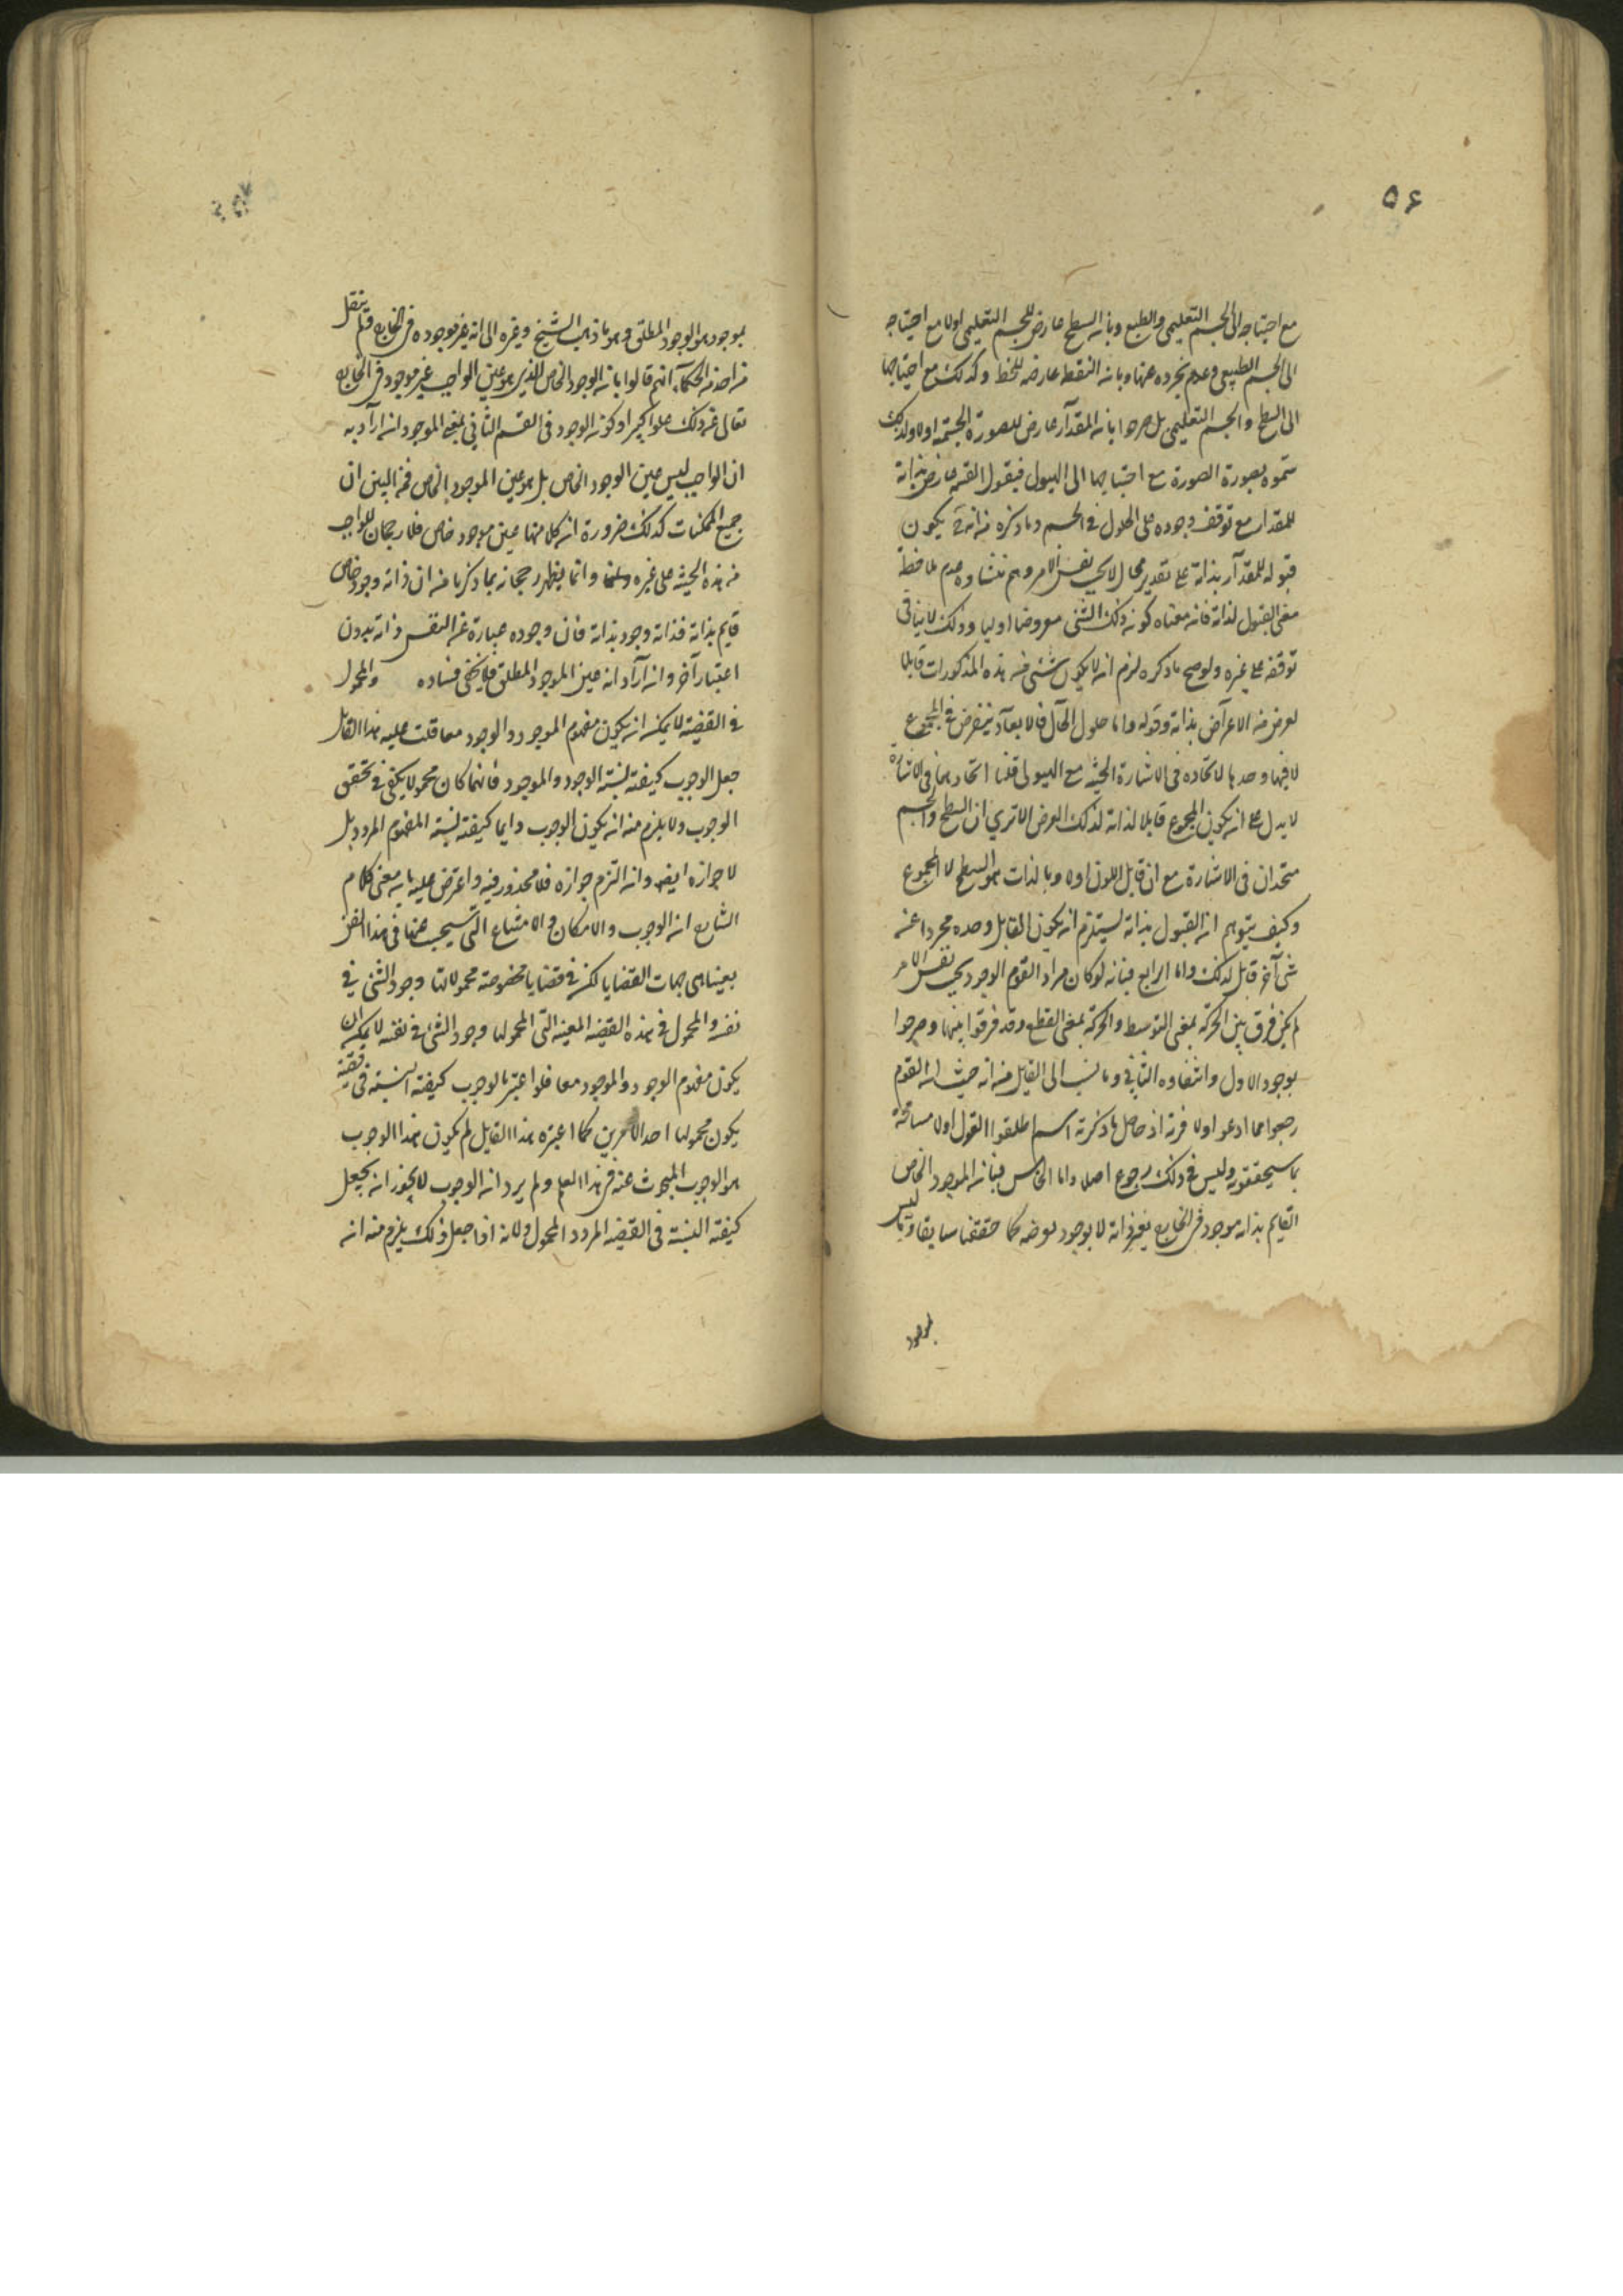 ۵۶
مع احتياجه الى الجسم التعليمى والطبيع وبان السطح عارض للجسم التعليمى اولا مع احتياجه
الى الجسم الطبيعى وعدم تجرده عنها وبان النقط عارضه للخط وكذلك مع احتياجها
الى السطح والجسم التعليمى بل صرحوا بان المقدار عارض للصورة الجسمية اولا ولذلك
سموه بصورة الصورة مع احتياجها الى الهيولى فيقول القسمة عارض بذاته
للمقدار مع توقف وجوده على الحلول فى الجسم وما ذكره من انه يكون
قبوله للمقدار بذاته على تقدير محال لا بحسب نفس الامر وهم منشاوه عدم ملاحظة
معنى القبول لذاته فانه معناه كونه ذلك الشئ معروضا اوليا وذلك لا ينافى
توقفه على غيره ولو صح ما ذكره لزم ان لا يكون شئى من هذه المذكورات قابلا
لعرض من الاعراض بذاته وقوله واما حلول الحال فالابعاد يفرض فى المجموع
لا فيها وحدها لاتحاده فى الاشارة الحسية مع الهيولى قلنا اتحادهما فى الاشارة
لا يدل على ان يكون المجموع قابلا لذاته لذلك العرض الا ترى ان السطح والجسم
متحدان فى الاشارة مع ان قابل اللون اولا وبالذات هو السطح لا المجموع
وكيف يتوهم ان القبول بذاته يستلزم ان يكون القابل وحده مجردا عنه
شئ آخر قابل لذلك واما الرابع فبانه لو كان مراد القوم الوجود بحسب نفس الامر
لم يكن فرق بين الحركة بمعنى التوسط والحركة بمعنى القطع وقد فرقوا بينها وصرحوا
بوجود الاول وانتفاء الثانى وما نسب الى القايل من انه حيث ان القوم
رجعوا عما ادعوا اولا فرية اذ حاصل ما ذكرته انهم اطلقوا القول اولا مسامحة
بما سيحققونه وليس فى ذلك رجوع اصلا واما الخامس فبانه الموجود الخاص
القايم بذاته موجود فى الخارج بنفس ذاته لا بوجود يعرضه كما حققنا سابقا وما ليس
بموجود
بموجود هو الوجود المطلق وهو ما ذهب الشيخ وغيره الى انه غير موجودة فى الخارج فلم ينقل
من احد من الحكماء انهم قالوا بان الوجود الخاص الذى هو عين الواجب غير موجود فى الخارج
تعالى عن ذلك علوا كبيرا وكون الوجود فى القسم الثانى بمعنى الموجود ان اراد به
ان الواجب ليس عين الوجود الخاص بل هو عين الموجود الخاص فمن البين ان
جميع الممكنات كذلك ضرورة ان كلا منها عين موجود خاص فلا رجحان للواجب
من هذه الحيثية على غيره وانما يظهر رجحانه بما ذكرنا من ان ذاته وجود خاص
قايم بذاته فذاته وجود بذاته فان وجوده عبارة عن النفس ذاته بدون
اعتبار آخر وان اراد انه عين الموجود المطلق فلا يخفى فساده والمحمول
فى القضية لا يمكن ان يكون مفهوم الموجود والوجود معا قلت عليه هذا القايل
جعل الوجوب كيفية لنسبة الوجود والموجود فانهما كان محمولا يكفى فى تحقق
الوجوب ولا يلزم منه ان يكون الوجوب دايما كيفية لنسبة المفهوم المردد بل
لا جوازه ايضا وان التزم جوازه فلا محذور فيه واعترض عليه بان معنى كلام
الشارح ان الوجوب والامكان والامتناع التى سيبحث عنها فى هذا الفن
بعينها هى جهات القضايا لكن فى قضايا مخصوصة محمولاتها وجود الشئ فى
نفسه والمحمول فى هذه القضية المعينة التى المحمولها وجود الشئ فى نفسه لا يمكن ان
يكون مفهوم الوجود والموجود معا فلو اعتبر الوجوب كيفية النسبة فى قضية
يكون محمولها احد الامرين كما اعتبره هذا القايل لم يكون هذا الوجوب
هو الوجوب المبحوث عنه فى هذا العلم ولم يرد ان الوجوب لا يجوز ان يجعل
كيفية النسبة فى القضية المردد المحمول ولانه اذا جعل ذلك يلزم منه ان